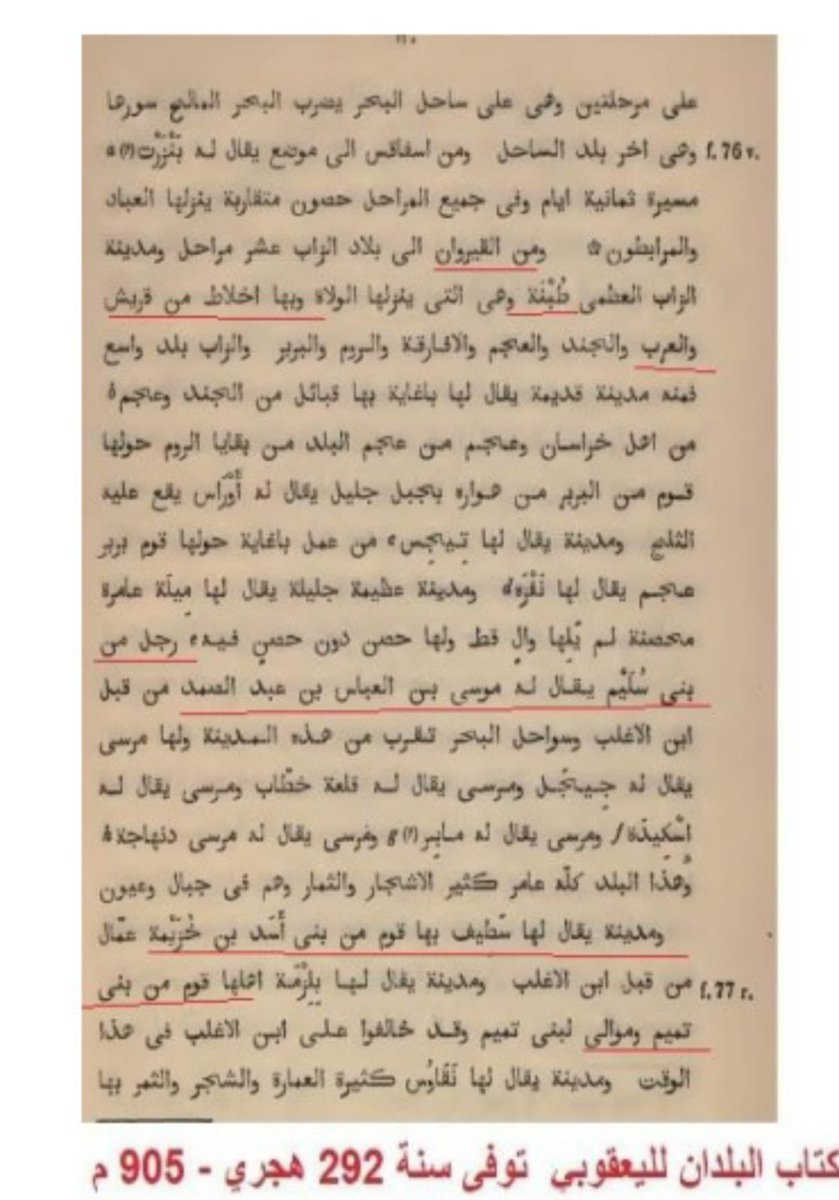 على مرحلتين وهى على ساحل البحر يضرب البحر المالح سورها
وهى اخر بلد الساحل ومن اسفاقس الى موضع يقال له بَنْزَرْت(?)a f. 76 v.
مسيرة ثمانية ايام وفى جميع المراحل حصون متقاربة ينزلها العباد
والمرابطون ۞ ومن القيروان الى بلاد الزاب عشر مراحل ومدينة
الزاب العظمى طُبْنَة وهى التى ينزلها الولاة وبها اخلاط من قريش
والعرب والجند والعجم والافارقة والروم والبربر والزاب بلد واسع
فمنه مدينة قديمة يقال لها باغاية بها قبائل من الجند وعجم
من اهل خراسان وعجم من عجم البلد من بقايا الروم حولها
قوم من البربر من هواره بجبل جليل يقال له أَوْرَاس يقع عليه
الثلج ومدينة يقال لها تيجس من عمل باغاية حولها قوم بربر
عجم يقال لها نَفْزَه ومدينة عظيمة جليلة يقال لها مِيلَة عامرة
محصنة لم يَلِها والٍ قط ولها حصن دون حصنٍ فيه رجل من
بنى سُلَيْم يقال له موسى بن العباس بن عبد الصمد من قبل
ابن الاغلب وسواحل البحر تقرب من هذه المدينة ولها مرسى
يقال له جِيجَل ومرسى يقال له قلعة خطّاب ومرسى يقال له
اسْكِيدَة f ومرسى يقال له مابر(?)g ومرسى يقال له مرسى دنهاجة h
وهُذا البلد كلّه عامر كثير الاشجار والثمار وهم فى جبال وعيون
ومدينة يقال لها سَطِيف بها قوم من بنى أَسَد بن خُزَيْمة عمّال
من قبل ابن الاغلب ومدينة يقال لها بِلِزْمَة اهلها قوم من بنى f. 77 r.
تميم وموالى لبنى تميم وقد خالفوا على ابن الاغلب فى هذا
الوقت ومدينة يقال لها نَقَاوُس كثيرة العمارة والشجر والثمر بها
كتاب البلدان لليعقوبي توفى سنة 292 هجري - 905 م